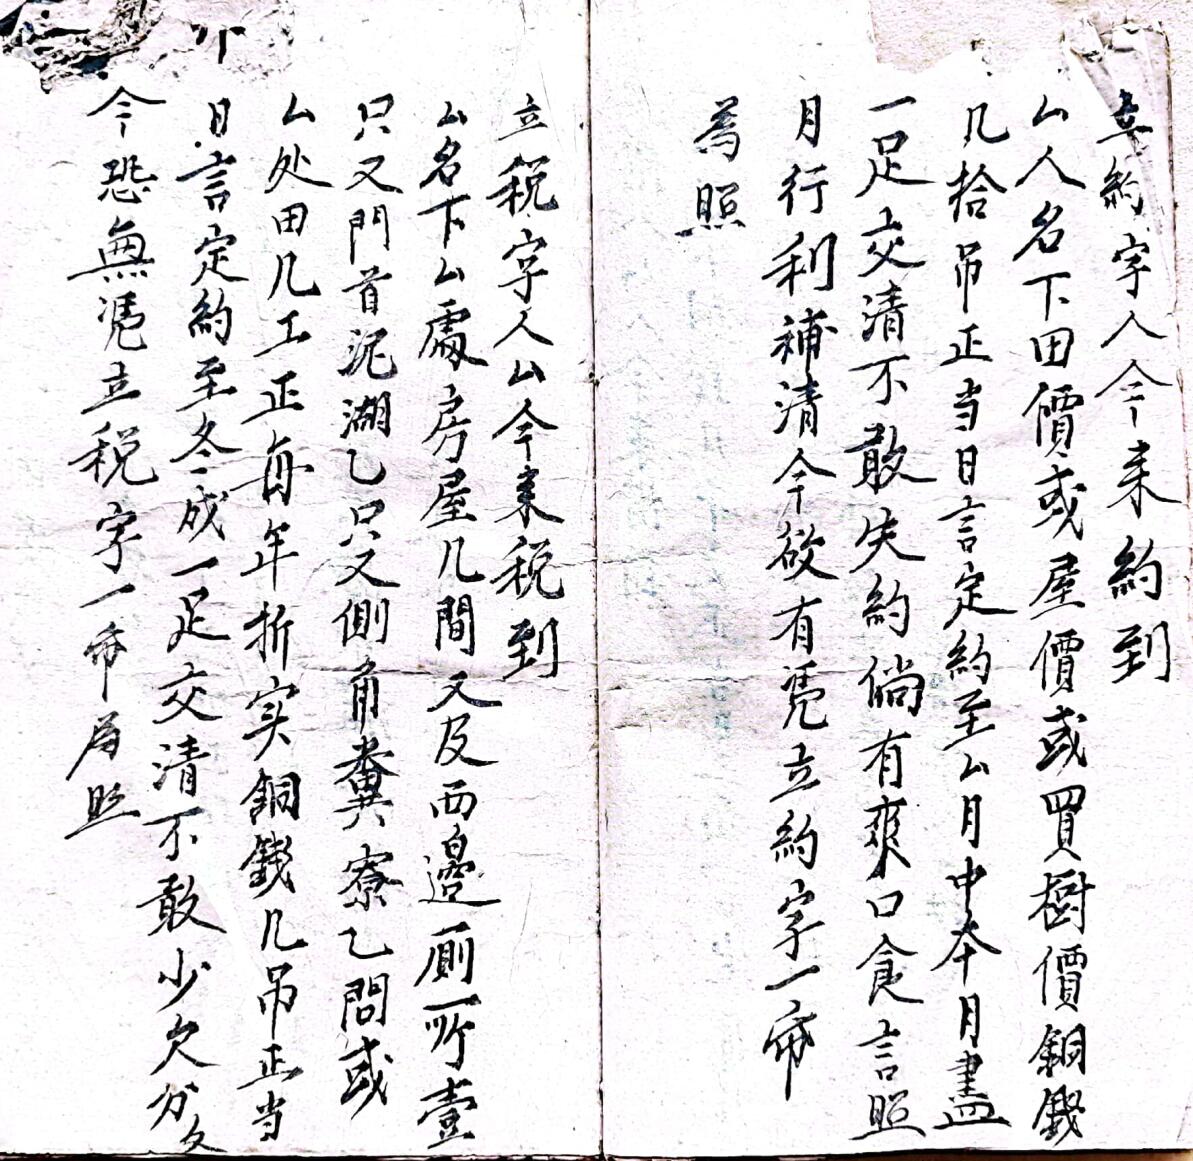 立約字人今来約到
厶人名下田價或屋價或買樹價銅錢
几拾吊正当日言定約至厶月中本月盡
一足交清不敢失約倘有爽口食言照
月行利補清今欲有凭立約字一帋
為照
立税字人厶今来税到
厶名下厶處房屋几間又及西邊厠所壹
只又門首泥湖乙只又側角糞寮乙間或
厶处田几工正每年折实銅錢几吊正当
日言定約至冬成一足交清不敢少欠分文
今恐無凴立税字一帋為照